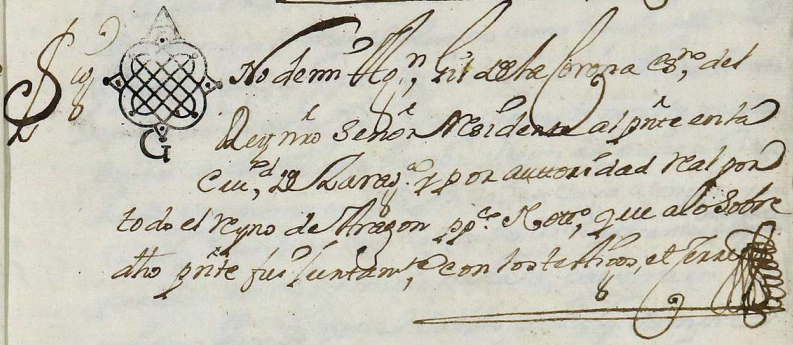 Sig no de mi Agn, Gil de la Corona esno, del
Rey nro señor Residente al pnte en la
Ciud, de Zarag.ª y por autoridad real por
todo el reyno de Aragon ppco Notto, que a lo sobre
dho pnte fui juntamte con los testigos, et cerre